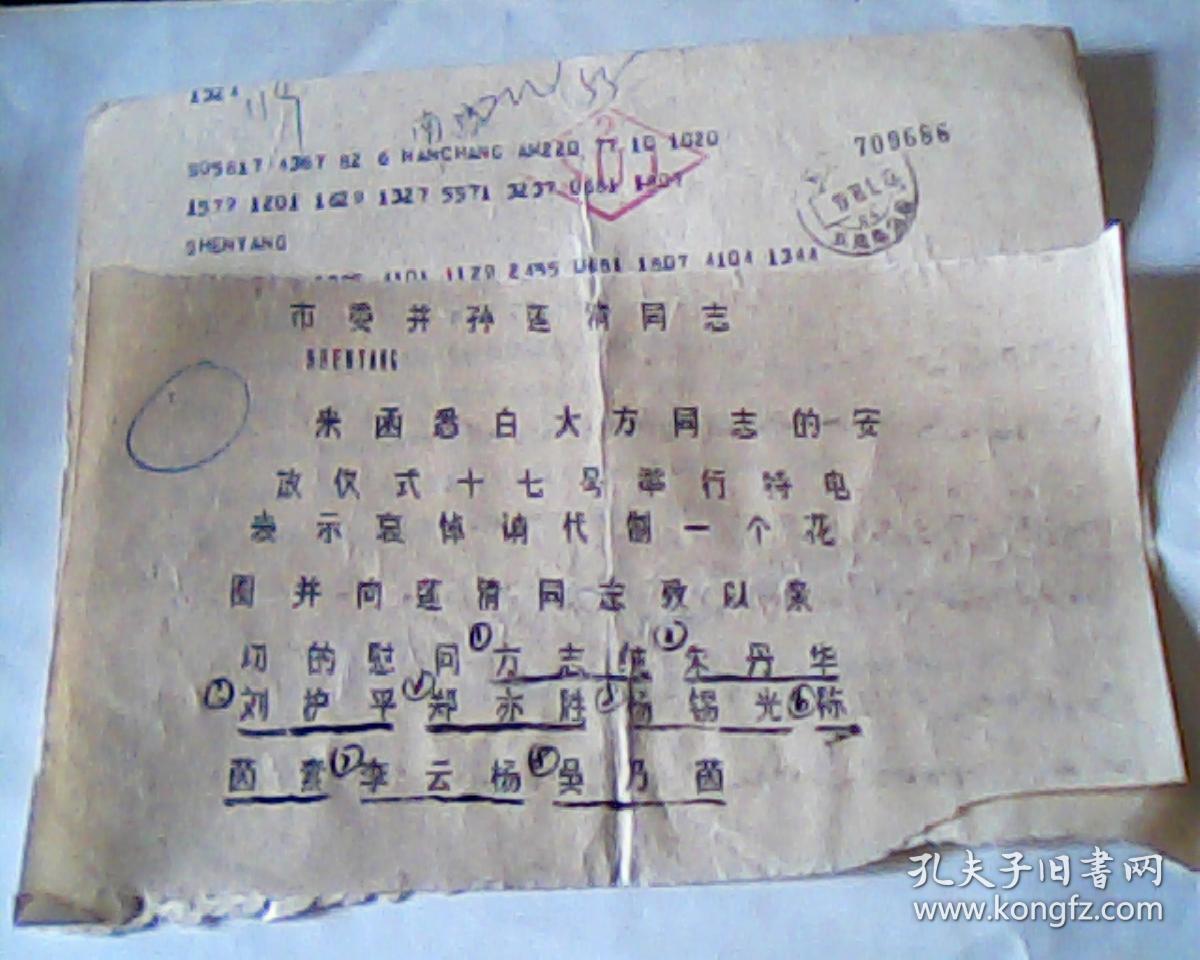 1324
南昌
S05817 4367 82 6 NANCHANG AM220 77 10 1020
709686
1579 1201 1629 1327 5571 3237 0681 1807
SHENYANG
4101 1129 2435 0681 1807 4104 1344
市委并孙莲清同志
SHENYANG
来函悉白大方同志的安
放仪式十七号举行特电
表示哀悼请代制一个花
圈并向莲清同志致以亲
切的慰问①方志 ②朱丹华
③刘护平④郑亦胜⑤杨锡光⑥陈
茵素⑦李云杨⑧吴乃茵
孔夫子旧书网
www.kongfz.com